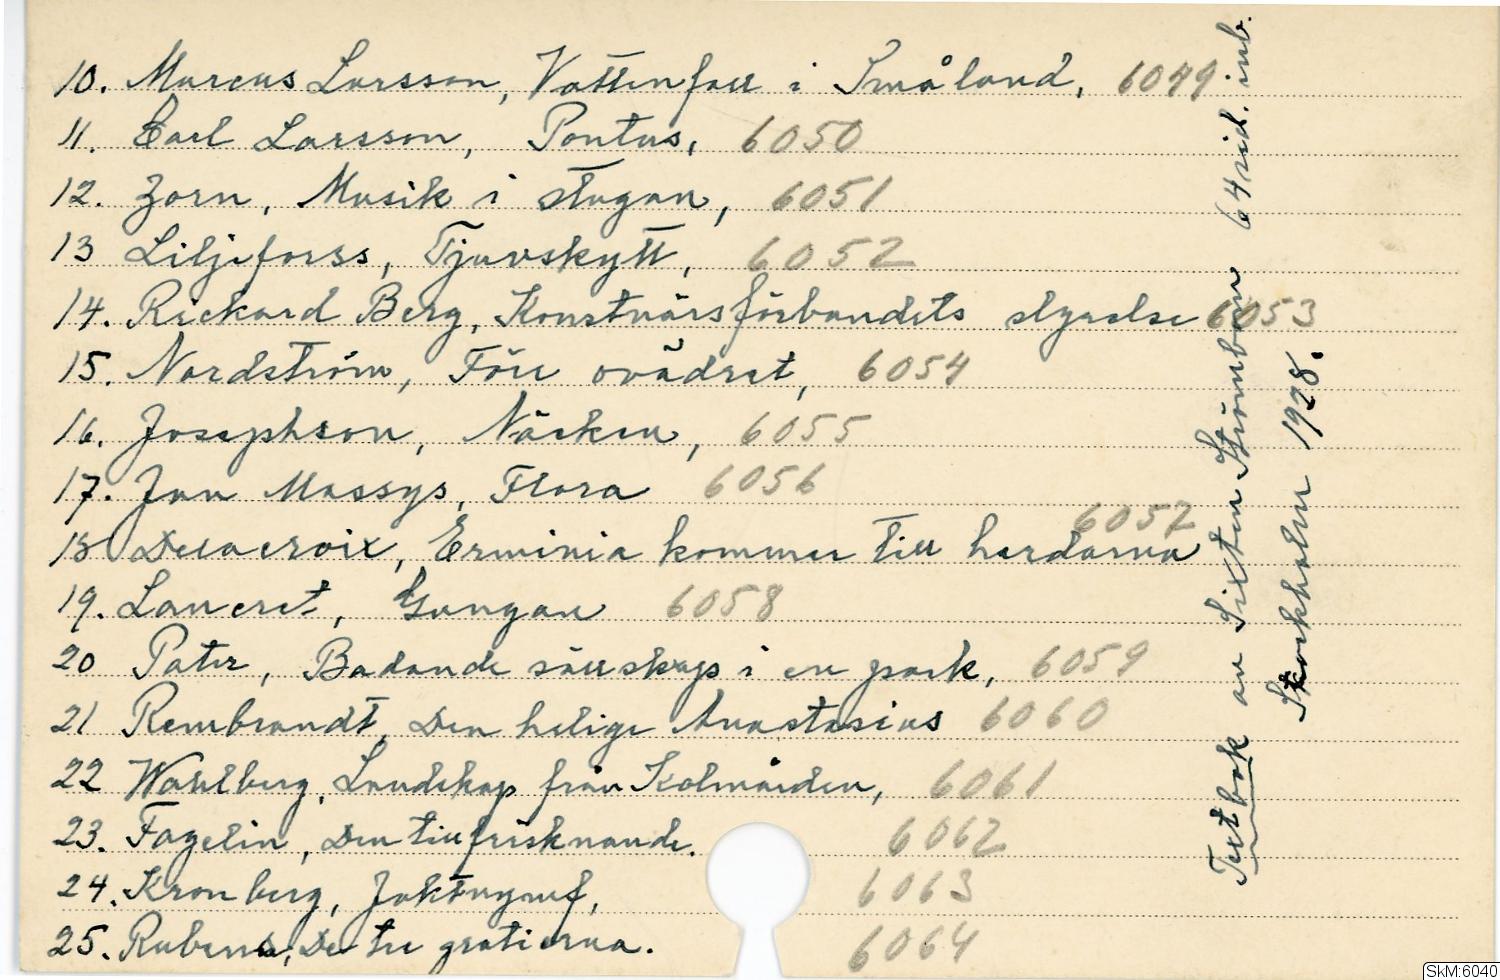 10. Marcus Larsson, Vattenfall i Småland, 6049
11. Carl Larsson, Pontus, 6050
12. Zorn, Musik i stugan, 6051
13 Liljeforss, Tjuvskytt, 6052
14. Rickard Berg, Konstnärsförbundets styrelse 6053
15. Nordström, Före ovädret, 6054
16. Josephson, Näcken, 6055
17. Jan Massys, Flora 6056
18 Delacroix, Erminia kommer till herdarna 6057
19. Lancret, Gungan 6058
20 Pater, Badande sällskap i en park, 6059
21 Rembrandt, Den helige Anastasius 6060
22 Wahlberg, Landskap från Kolmården, 6061
23. Fagelin, Den tillfrisknande. 6062
24. Kronberg, Jaktnymf, 6063
25. Rubens, De tre gratierna. 6064
Textbok av Sixten Strömbom 64 sid. inb.
Stockholm 1928.
SkM:6040